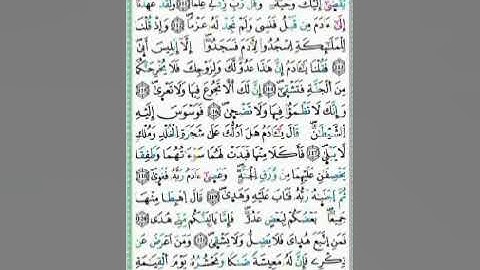 يُقْضَىٰ إِلَيْكَ وَحْيُهُۥ وَقُل رَّبِّ زِدْنِى عِلْمًا ﴿١١٤﴾ وَلَقَدْ عَهِدْنَآ
إِلَىٰٓ ءَادَمَ مِن قَبْلُ فَنَسِىَ وَلَمْ نَجِدْ لَهُۥ عَزْمًا ﴿١١٥﴾ وَإِذْ قُلْنَا
لِلْمَلَٰٓئِكَةِ ٱسْجُدُوا۟ لِءَادَمَ فَسَجَدُوٓا۟ إِلَّآ إِبْلِيسَ أَبَىٰ
﴿١١٦﴾ فَقُلْنَا يَٰٓـَٔادَمُ إِنَّ هَٰذَا عَدُوٌّ لَّكَ وَلِزَوْجِكَ فَلَا يُخْرِجَنَّكُمَا
مِنَ ٱلْجَنَّةِ فَتَشْقَىٰٓ ﴿١١٧﴾ إِنَّ لَكَ أَلَّا تَجُوعَ فِيهَا وَلَا تَعْرَىٰ ﴿١١٨﴾
وَأَنَّكَ لَا تَظْمَؤُا۟ فِيهَا وَلَا تَضْحَىٰ ﴿١١٩﴾ فَوَسْوَسَ إِلَيْهِ
ٱلشَّيْطَٰنُ قَالَ يَٰٓـَٔادَمُ هَلْ أَدُلُّكَ عَلَىٰ شَجَرَةِ ٱلْخُلْدِ وَمُلْكٍ
لَّا يَبْلَىٰ ﴿١٢٠﴾ فَأَكَلَا مِنْهَا فَبَدَتْ لَهُمَا سَوْءَٰتُهُمَا وَطَفِقَا
يَخْصِفَانِ عَلَيْهِمَا مِن وَرَقِ ٱلْجَنَّةِ وَعَصَىٰٓ ءَادَمُ رَبَّهُۥ فَغَوَىٰ ﴿١٢١﴾
ثُمَّ ٱجْتَبَٰهُ رَبُّهُۥ فَتَابَ عَلَيْهِ وَهَدَىٰ ﴿١٢٢﴾ قَالَ ٱهْبِطَا مِنْهَا
جَمِيعًۢا بَعْضُكُمْ لِبَعْضٍ عَدُوٌّ فَإِمَّا يَأْتِيَنَّكُم مِّنِّى هُدًى
فَمَنِ ٱتَّبَعَ هُدَاىَ فَلَا يَضِلُّ وَلَا يَشْقَىٰ ﴿١٢٣﴾ وَمَنْ أَعْرَضَ عَن
ذِكْرِى فَإِنَّ لَهُۥ مَعِيشَةً ضَنكًا وَنَحْشُرُهُۥ يَوْمَ ٱلْقِيَٰمَةِ